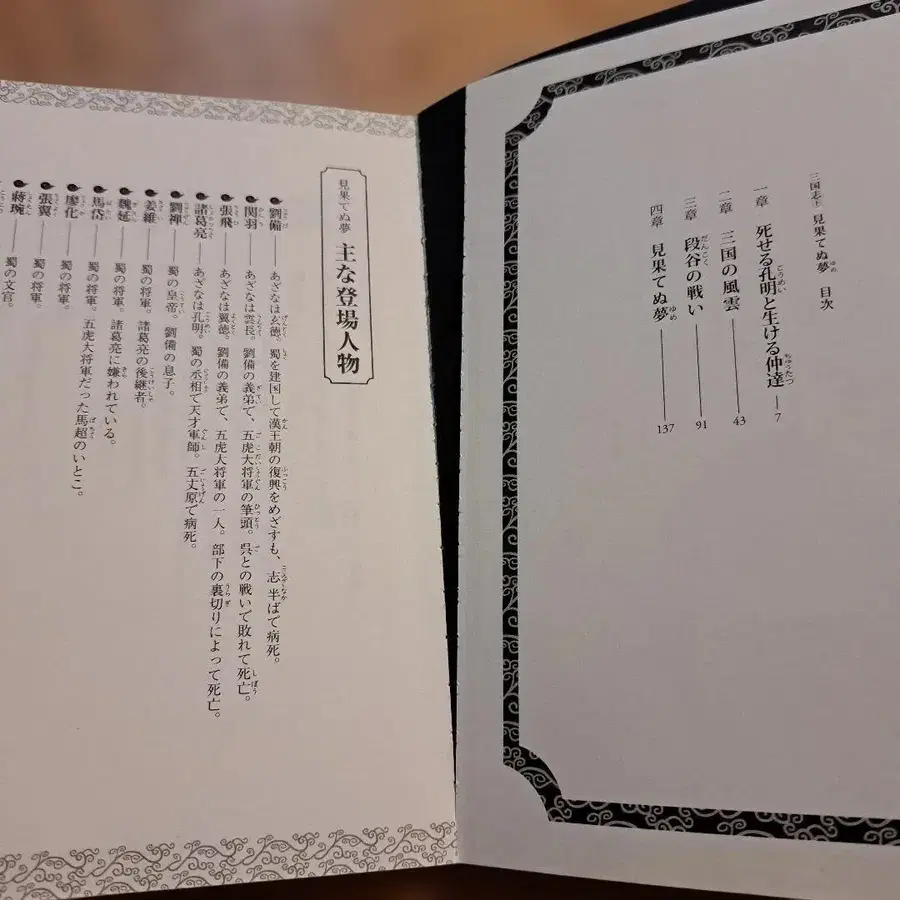 三国志 見果てぬ夢 目次
一章 死せる孔明と生ける仲達 7
二章 三国の風雲 43
三章 段谷の戦い 91
四章 見果てぬ夢 137
見果てぬ夢 主な登場人物
劉備 あざなは玄徳。蜀を建国して漢王朝の復興をめざすも、志半ばで病死。
関羽 あざなは雲長。劉備の義弟で、五虎大将軍の筆頭。呉との戦いで敗れて死亡。
張飛 あざなは翼徳。劉備の義弟で、五虎大将軍の一人。部下の裏切りによって死亡。
諸葛亮 あざなは孔明。蜀の丞相で天才軍師。五丈原で病死。
劉禅 蜀の皇帝。劉備の息子。
姜維 蜀の将軍。諸葛亮の後継者。
魏延 蜀の将軍。諸葛亮に嫌われている。
馬岱 蜀の将軍。五虎大将軍だった馬超のいとこ。
廖化 蜀の将軍。
張翼 蜀の将軍。
蔣琬 蜀の文官。